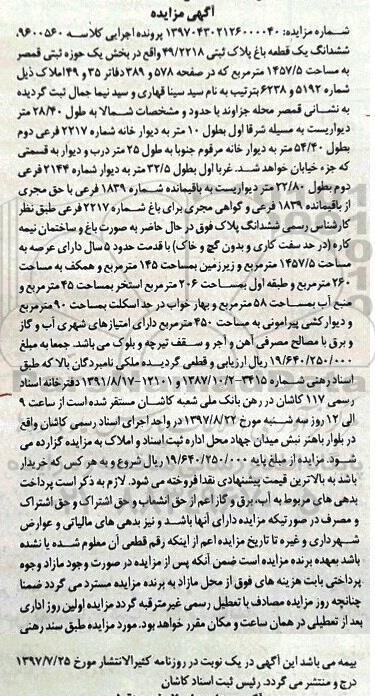 آگهی مزایده
شماره مزایده: ۱۳۹۷۰۴۳۰۲۱۲۶۰۰۰۰۴۰ پرونده اجرایی کلاسه ۹۶۰۰۵۶۰،
ششدانگ یک قطعه باغ پلاک ثبتی ۴۹/۲۲۱۸ واقع در بخش یک حوزه ثبتی قمصر
به مساحت ۱۴۵۷/۵ مترمربع که در صفحه ۵۷۸ و ۳۸۹ دفاتر ۳۵ و ۴۹ املاک ذیل
شماره ۵۱۹۲ و ۶۲۳۸ بترتیب به نام سید سینا قهاری و سید نیما جمال ثبت گردیده
به نشانی قمصر محله جزاوند با حدود و مشخصات شمالا به طول ۲۸/۴۰ متر
دیواریست به مسیله شرقا اول بطول ۱۰ متر به دیوار خانه شماره ۲۲۱۷ فرعی دوم
بطول ۵۴/۴۰ متر به دیوار خانه مرقوم جنوبا به طول ۲۵ متر درب و دیوار به قسمتی
که جزء خیابان خواهد شد. غربا اول بطول ۳۲/۵ متر به دیوار شماره ۲۱۴۴ فرعی
دوم بطول ۲۲/۸۰ متر دیواریست به باقیمانده شماره ۱۸۳۹ فرعی با حق مجری
از باقیمانده ۱۸۳۹ فرعی و گواهی مجری برای باغ شماره ۲۲۱۷ فرعی طبق نظر
کارشناس رسمی ششدانگ پلاک فوق در حال حاضر به صورت باغ و ساختمان نیمه
کاره (در حد سفت کاری و بدون گچ و خاک) با قدمت حدود ۵ سال دارای عرصه به
مساحت ۱۴۵۷/۵ مترمربع و زیرزمین بمساحت ۱۴۵ مترمربع و همکف به مساحت
۲۶۰ مترمربع و طبقه اول بمساحت ۲۰۶ مترمربع استخر بمساحت ۴۵ مترمربع و
منبع آب بمساحت ۵۸ مترمربع و بهار خواب در حد اسکلت بمساحت ۹۰ مترمربع
و دیوارکشی پیرامونی به مساحت ۴۵۰ مترمربع دارای امتیازهای شهری آب و گاز
و برق با مصالح مصرفی آهن و آجر و سقف تیرچه و بلوک می باشد. جمعا به مبلغ
۱۹/۶۴۰/۲۵۰/۰۰۰ ریال ارزیابی و قطعی گردیده ملکی نامبردگان بالا که طبق
اسناد رهنی شماره ۳۴۱۵-۱۳۸۷/۱۰/۲ و ۱۲۱۰۱-۱۳۹۱/۸/۱۷ دفترخانه اسناد
رسمی ۱۱۷ کاشان در رهن بانک ملی شعبه کاشان مستقر شده است از ساعت ۹
الی ۱۲ روز سه شنبه مورخ ۱۳۹۷/۸/۲۲ در واحد اجرای اسناد رسمی کاشان واقع
در بلوار باهنر نبش میدان جهاد محل اداره ثبت اسناد و املاک به مزایده گزارده می
شود. مزایده از مبلغ پایه ۱۹/۶۴۰/۲۵۰/۰۰۰ ریال شروع و به هر کس که خریدار
باشد به بالاترین قیمت پیشنهادی نقدا فروخته می شود. لازم به ذکر است پرداخت
بدهی های مربوط به آب، برق و گاز اعم از حق انشعاب و حق اشتراک و حق اشتراک
و مصرف در صورتیکه مزایده دارای آنها باشد و نیز بدهی های مالیاتی و عوارض
شهرداری و غیره تا تاریخ مزایده اعم از اینکه رقم قطعی آن معلوم شده یا نشده
باشد بعهده برنده مزایده است ضمن آنکه پس از مزایده در صورت وجود مازاد وجوه
پرداختی بابت هزینه های فوق از محل مازاد به برنده مزایده مسترد می گردد ضمنا
چنانچه روز مزایده مصادف با تعطیل رسمی غیرمترقبه گردد مزایده اولین روز اداری
بعد از تعطیلی در همان ساعت و مکان مقرر خواهد بود. مورد مزایده طبق سند رهنی
بیمه می باشد این آگهی در یک نوبت در روزنامه کثیرالانتشار مورخ ۱۳۹۷/۷/۲۵
درج و منتشر می گردد. رئیس ثبت اسناد کاشان